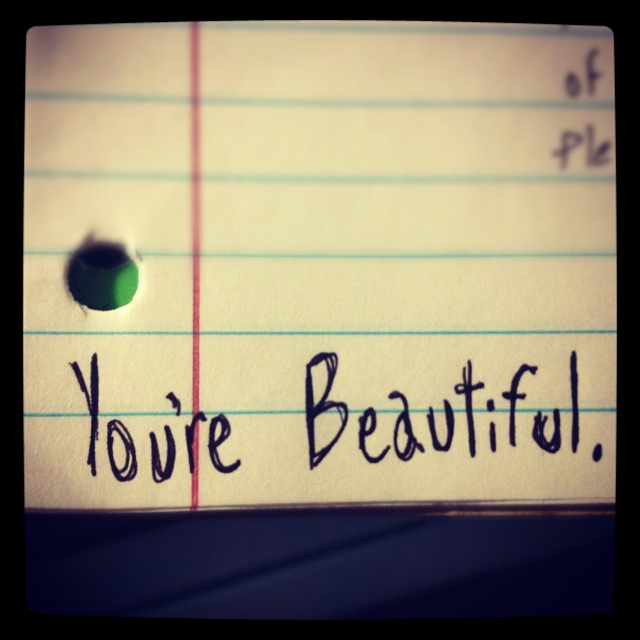 of
You're Beautiful.